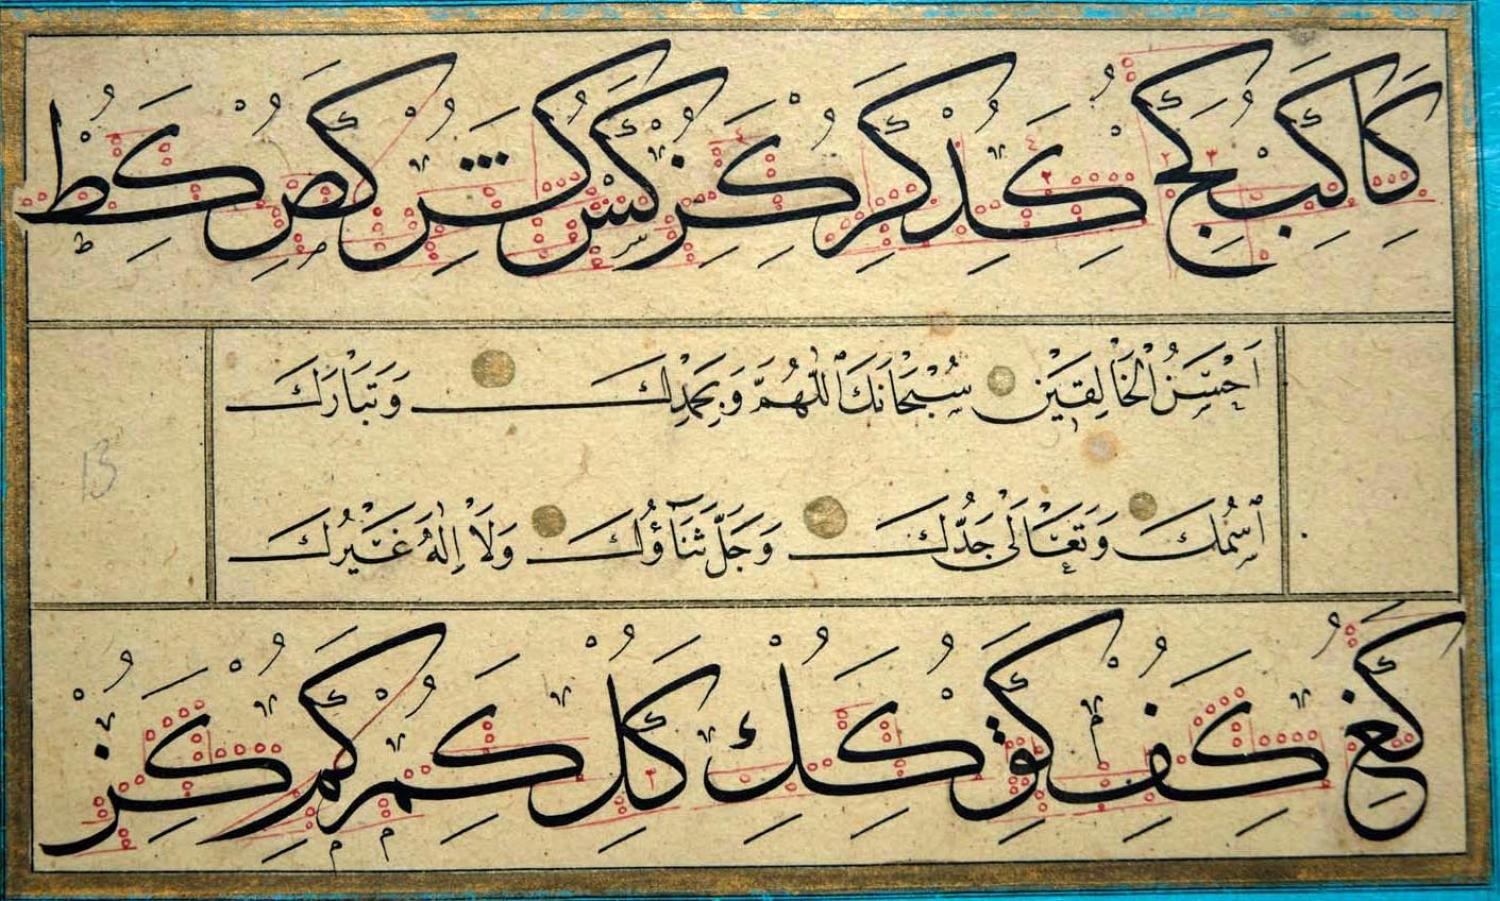 كا كب كج كد كر كر كس كش كص كط
اَحْسَنُ الْخَالِقِيْنَ سُبْحَانَكَ اللّٰهُمَّ وَبِحَمْدِكَ وَتَبَارَكَ
اسْمُكَ وَتَعَالٰى جَدُّكَ وَجَلَّ ثَنَآؤُكَ وَلَا اِلٰهَ غَيْرُكَ
كع كف كق كك كل كم كم كن